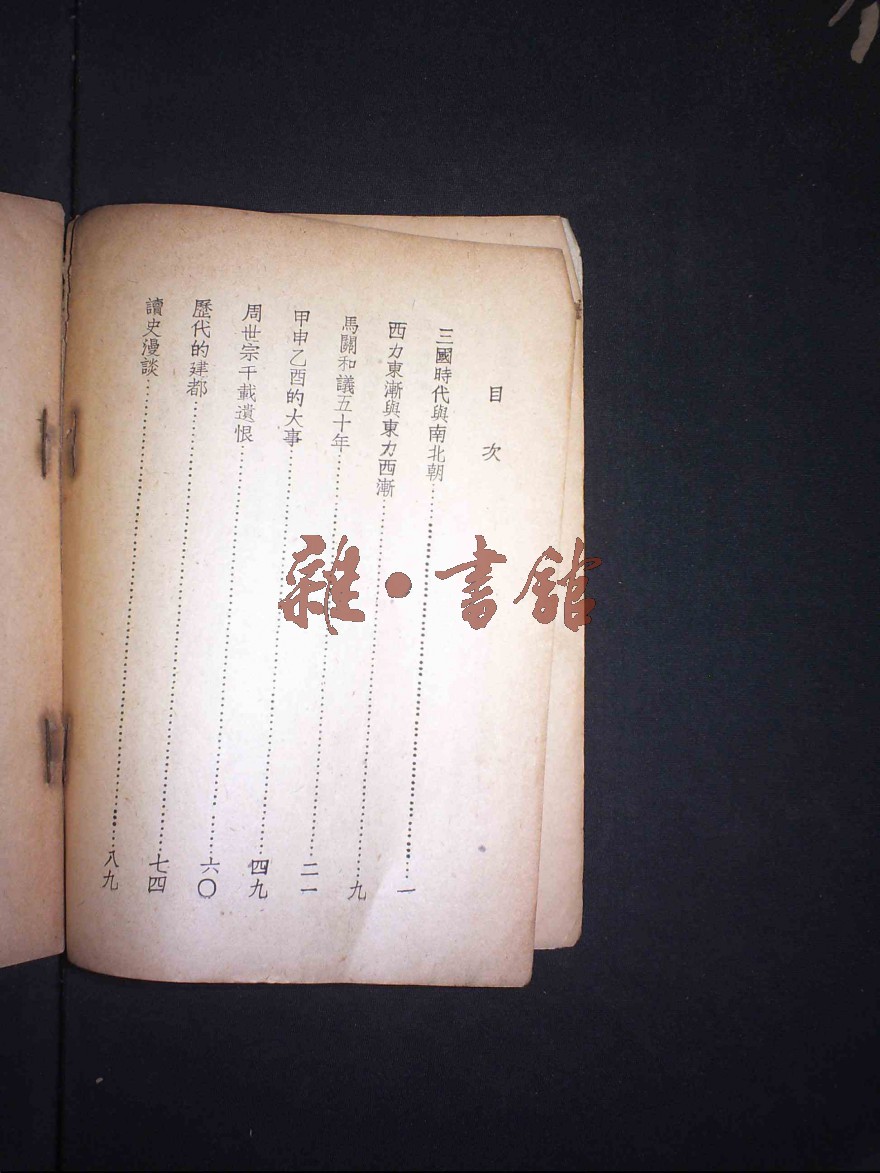 目次
三國時代與南北朝……一
西力東漸與東力西漸……九
馬關和議五十年……二一
甲申乙酉的大事……四九
周世宗千載遺恨……六〇
歷代的建都……七四
讀史漫談……八九
雜·書館